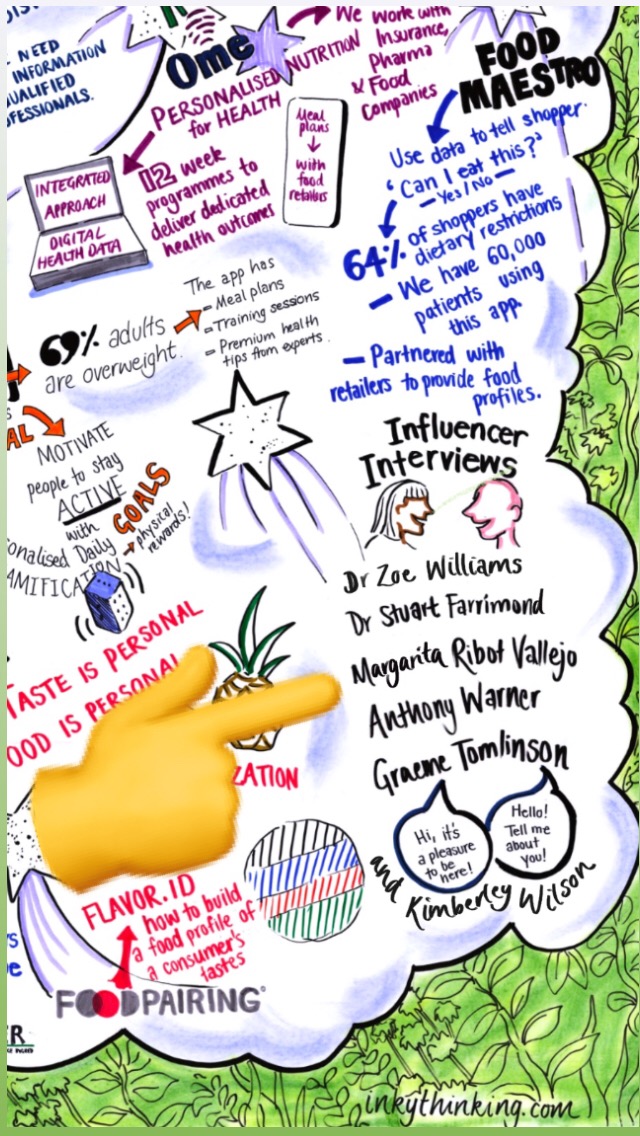 NEED
INFORMATION
QUALIFIED
Ome
PERSONALISED NUTRITION
for HEALTH
We work with
Insurance,
Pharma
& Food
Companies
INTEGRATED
APPROACH
DIGITAL
HEALTH DATA
12 week
programmes to
deliver dedicated
health outcomes
Meal
plans
↓
with
food
retailers
FOOD
MAESTRO
Use data to tell shopper.
'Can I eat this?'
- Yes / No -
64% of shoppers have
dietary restrictions
- We have 60,000
patients using
this app.
- Partnered with
retailers to provide food
profiles.
69% adults
are overweight.
The app has
- Meal plans
- Training sessions
- Premium health
tips from experts.
MOTIVATE
people to stay
ACTIVE
with
Daily
GOALS
→ physical
rewards!
TASTE IS PERSONAL
IS PERSONAL
Influencer
Interviews
Dr Zoe Williams
Dr Stuart Farrimond
Margarita Ribot Vallejo
Anthony Warner
Graeme Tomlinson
and Kimberley Wilson
Hi, it's
a pleasure
to be
here!
Hello!
Tell me
about
you!
FLAVOR.ID
how to build
a food profile of
a consumer's
tastes
FOODPAIRING®
inkythinking.com